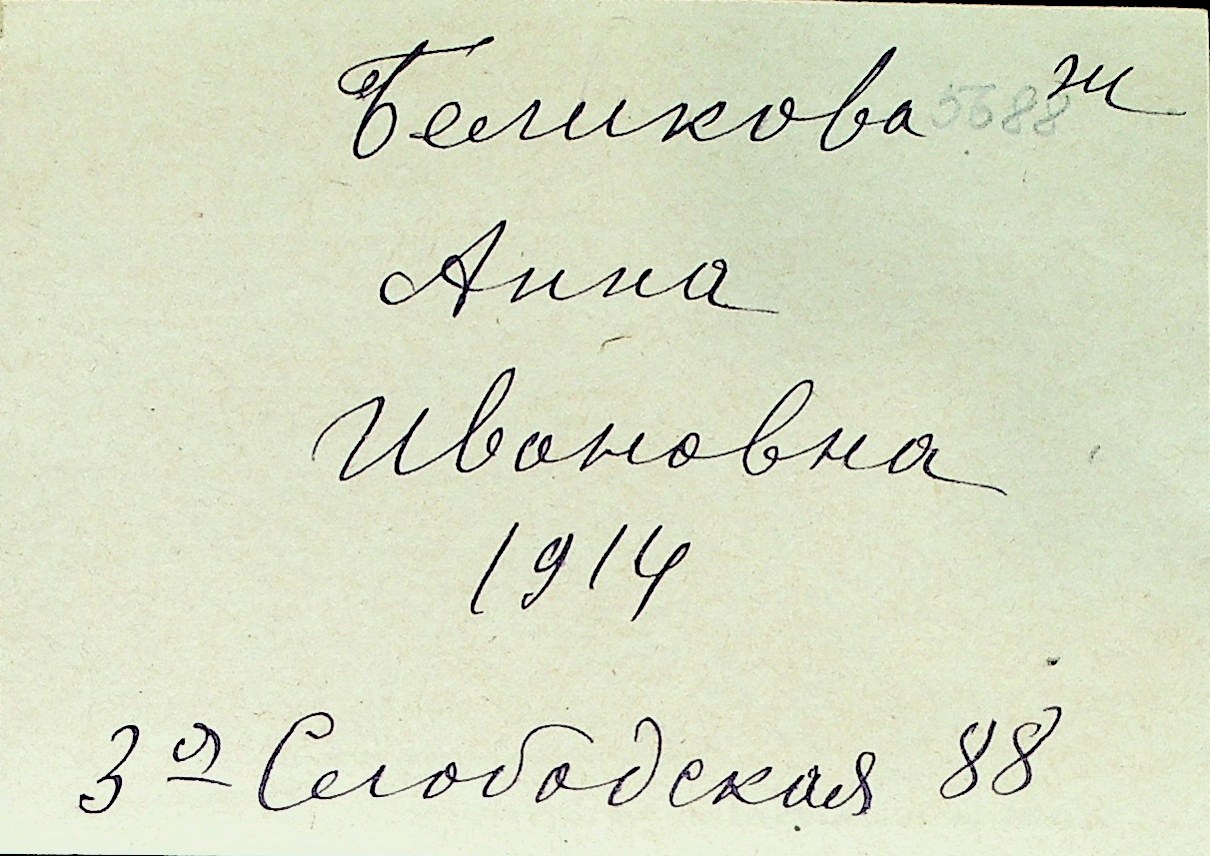 Беликова 5688 ж
Анна
Ивановна
1914
3я Слободская 88